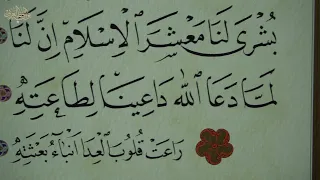 بُشْرَى لَنَا مَعْشَرَ الْإِسْلَامِ إِنَّ لَنَا
لَمَّا دَعَا اللَّهُ دَاعِينَا لِطَاعَتِهِ
رَاعَتْ قُلُوبَ الْعِدَا أَنْبَاءُ بِعْثَتِهِ